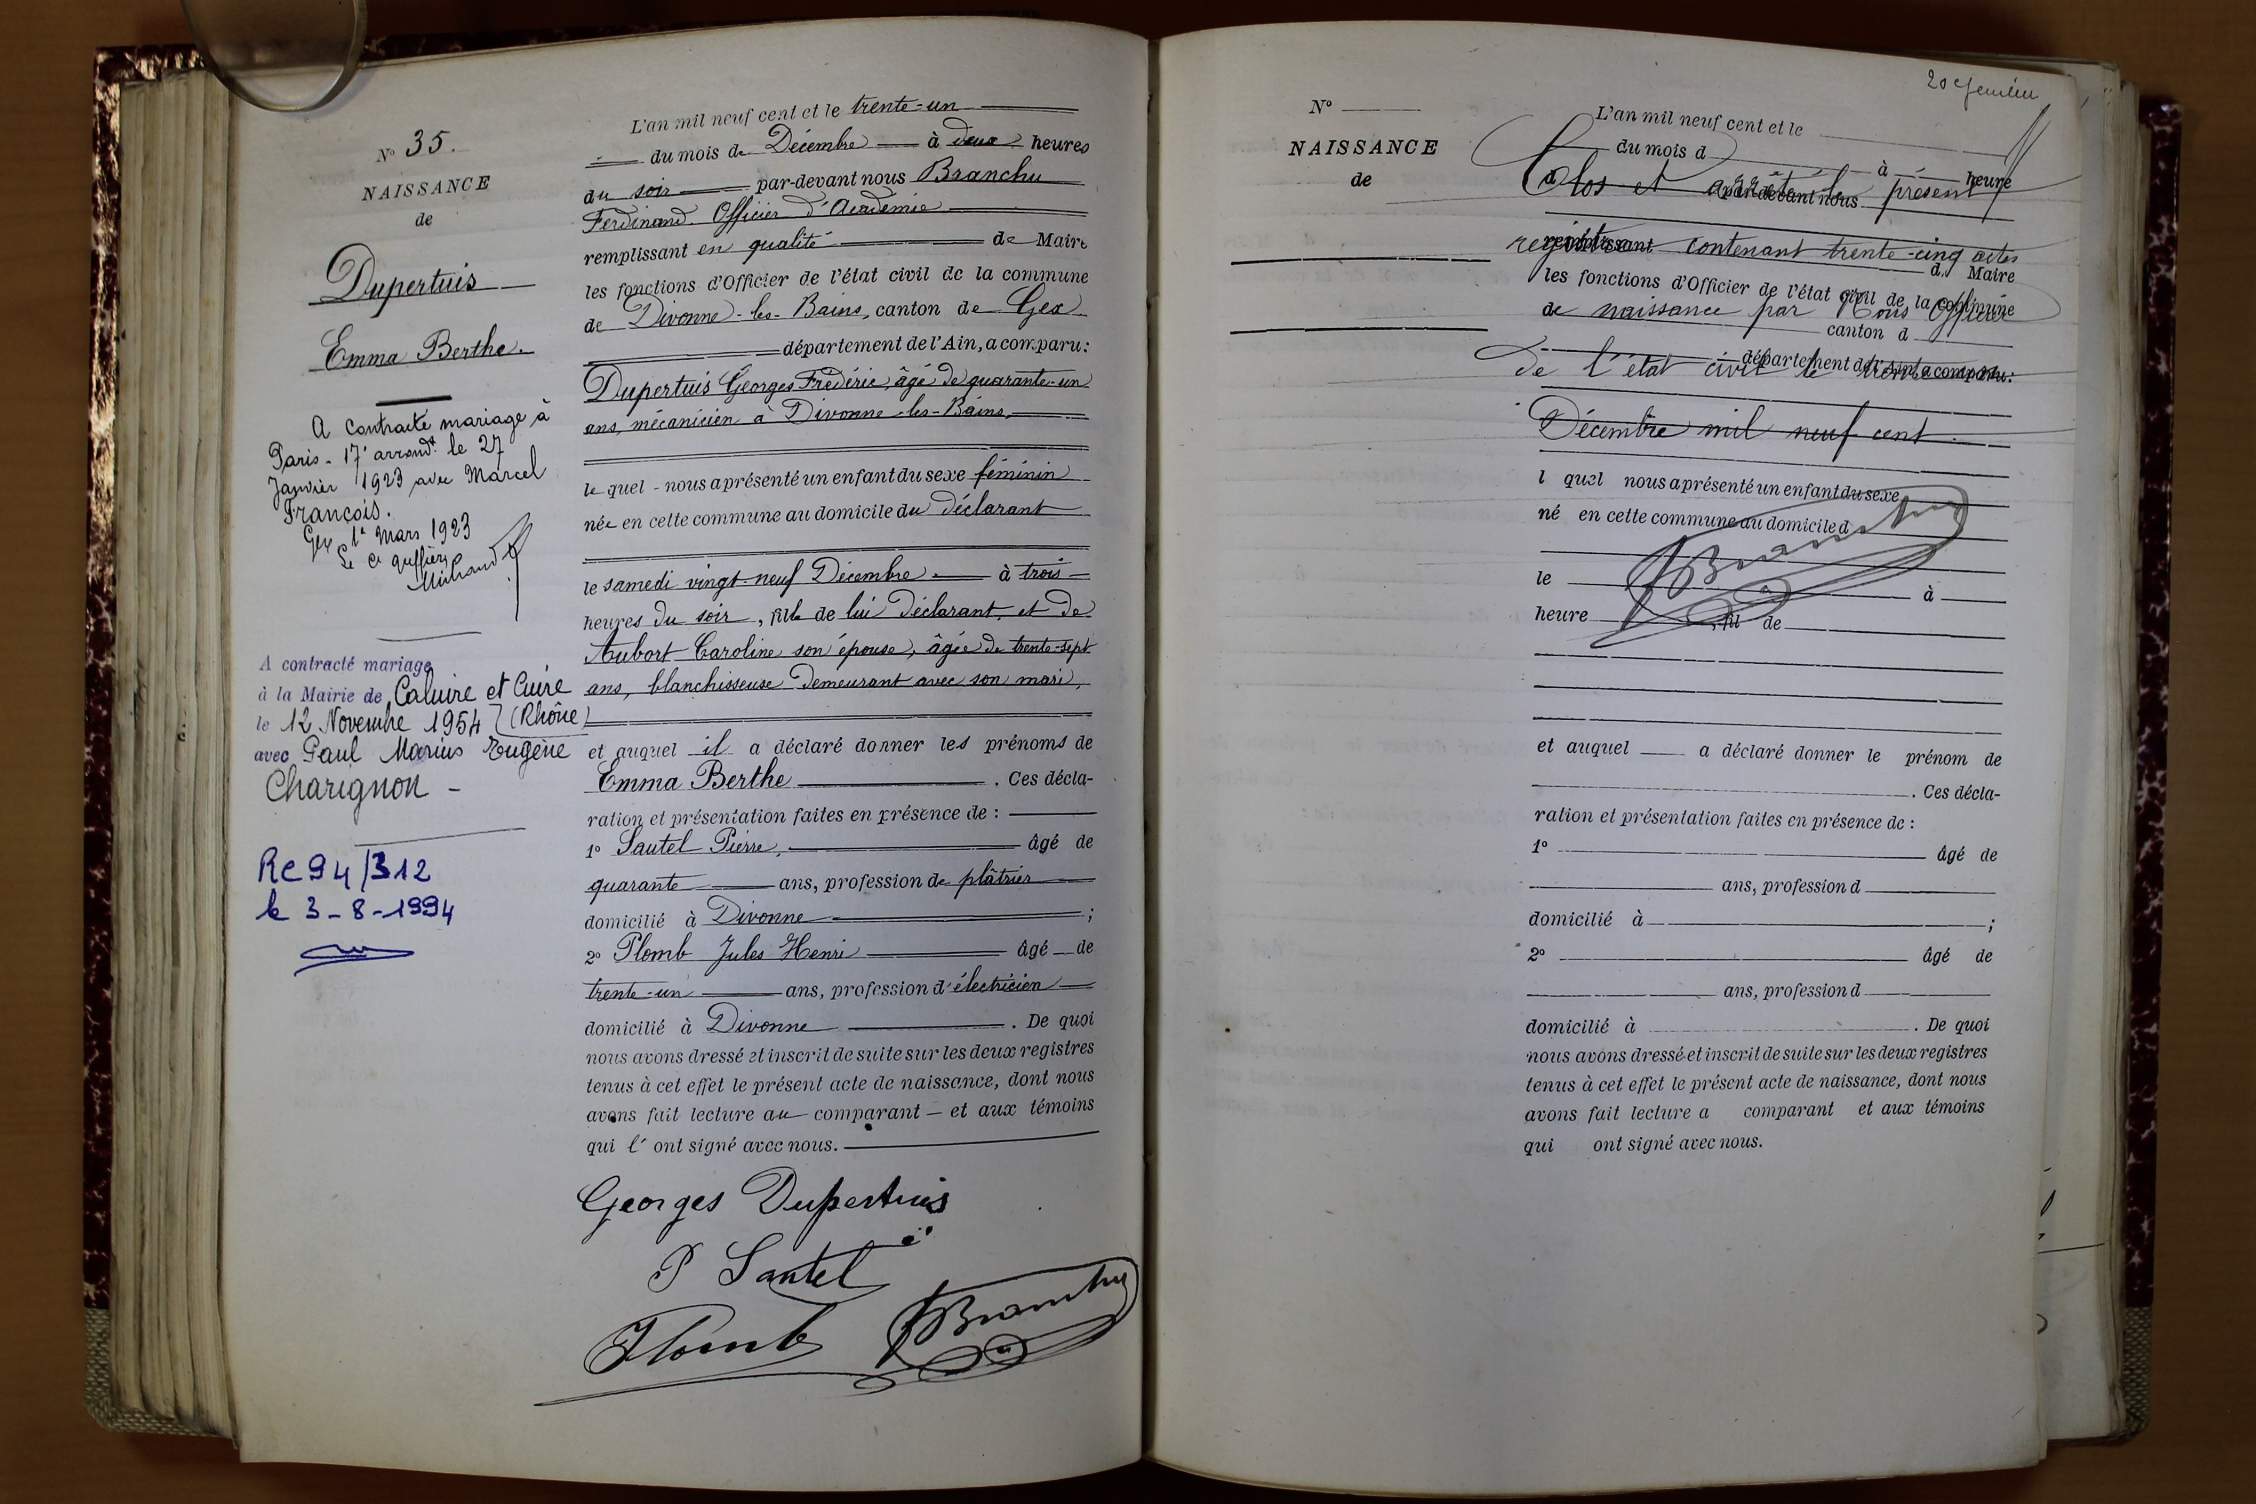 N° 35.
NAISSANCE
de
Dupertuis
Emma Berthe.
A contracté mariage à
Paris - 17e arrondt le 27
Janvier 1923 avec Marcel
François.
Gex 1er Mars 1923
Le Cis greffier
A contracté mariage
à la Mairie de Caluire et Cuire
le 12 Novembre 1954 (Rhône)
avec Paul Marius Eugène
Charignon -
RC 94/312
le 3-8-1994
L'an mil neuf cent et le trente-un
du mois de Décembre à deux heures
du soir par-devant nous Branchu
Ferdinand Officier d'Académie
remplissant en qualité de Maire
les fonctions d'Officier de l'état civil de la commune
de Divonne-les-Bains, canton de Gex
département de l'Ain, a comparu:
Dupertuis Georges Frédéric, âgé de quarante-un
ans, mécanicien à Divonne-les-Bains,
lequel nous a présenté un enfant du sexe féminin
née en cette commune au domicile du déclarant
le samedi vingt-neuf Décembre à trois
heures du soir, fille de lui déclarant, et de
Aubort Caroline son épouse, âgée de trente-sept
ans, blanchisseuse demeurant avec son mari,
et auquel il a déclaré donner les prénoms de
Emma Berthe. Ces décla-
ration et présentation faites en présence de :
1° Sautel Pierre, âgé de
quarante ans, profession de plâtrier
domicilié à Divonne ;
2° Plomb Jules Henri âgé de
trente-un ans, profession d'électricien
domicilié à Divonne. De quoi
nous avons dressé et inscrit de suite sur les deux registres
tenus à cet effet le présent acte de naissance, dont nous
avons fait lecture au comparant et aux témoins
qui l'ont signé avec nous.
Georges Dupertuis
P Sautel
J Plomb
Branchu
20e feuillet
N°
NAISSANCE
de
L'an mil neuf cent et le
du mois d à heure
d par-devant nous
Clos et arrêté le présent
remplissant d Maire
registre contenant trente-cinq actes
les fonctions d'Officier de l'état civil de la commune
de naissance par Nous Officier
de canton d
département de l'Ain, a comparu:
de l'état civil le trente-un
Décembre mil neuf cent
l quel nous a présenté un enfant du sexe
né en cette commune au domicile d
Branchu
le à
heure , fil de
et auquel a déclaré donner le prénom de
. Ces décla-
ration et présentation faites en présence de :
1° âgé de
ans, profession d
domicilié à ;
2° âgé de
ans, profession d
domicilié à . De quoi
nous avons dressé et inscrit de suite sur les deux registres
tenus à cet effet le présent acte de naissance, dont nous
avons fait lecture a comparant et aux témoins
qui ont signé avec nous.